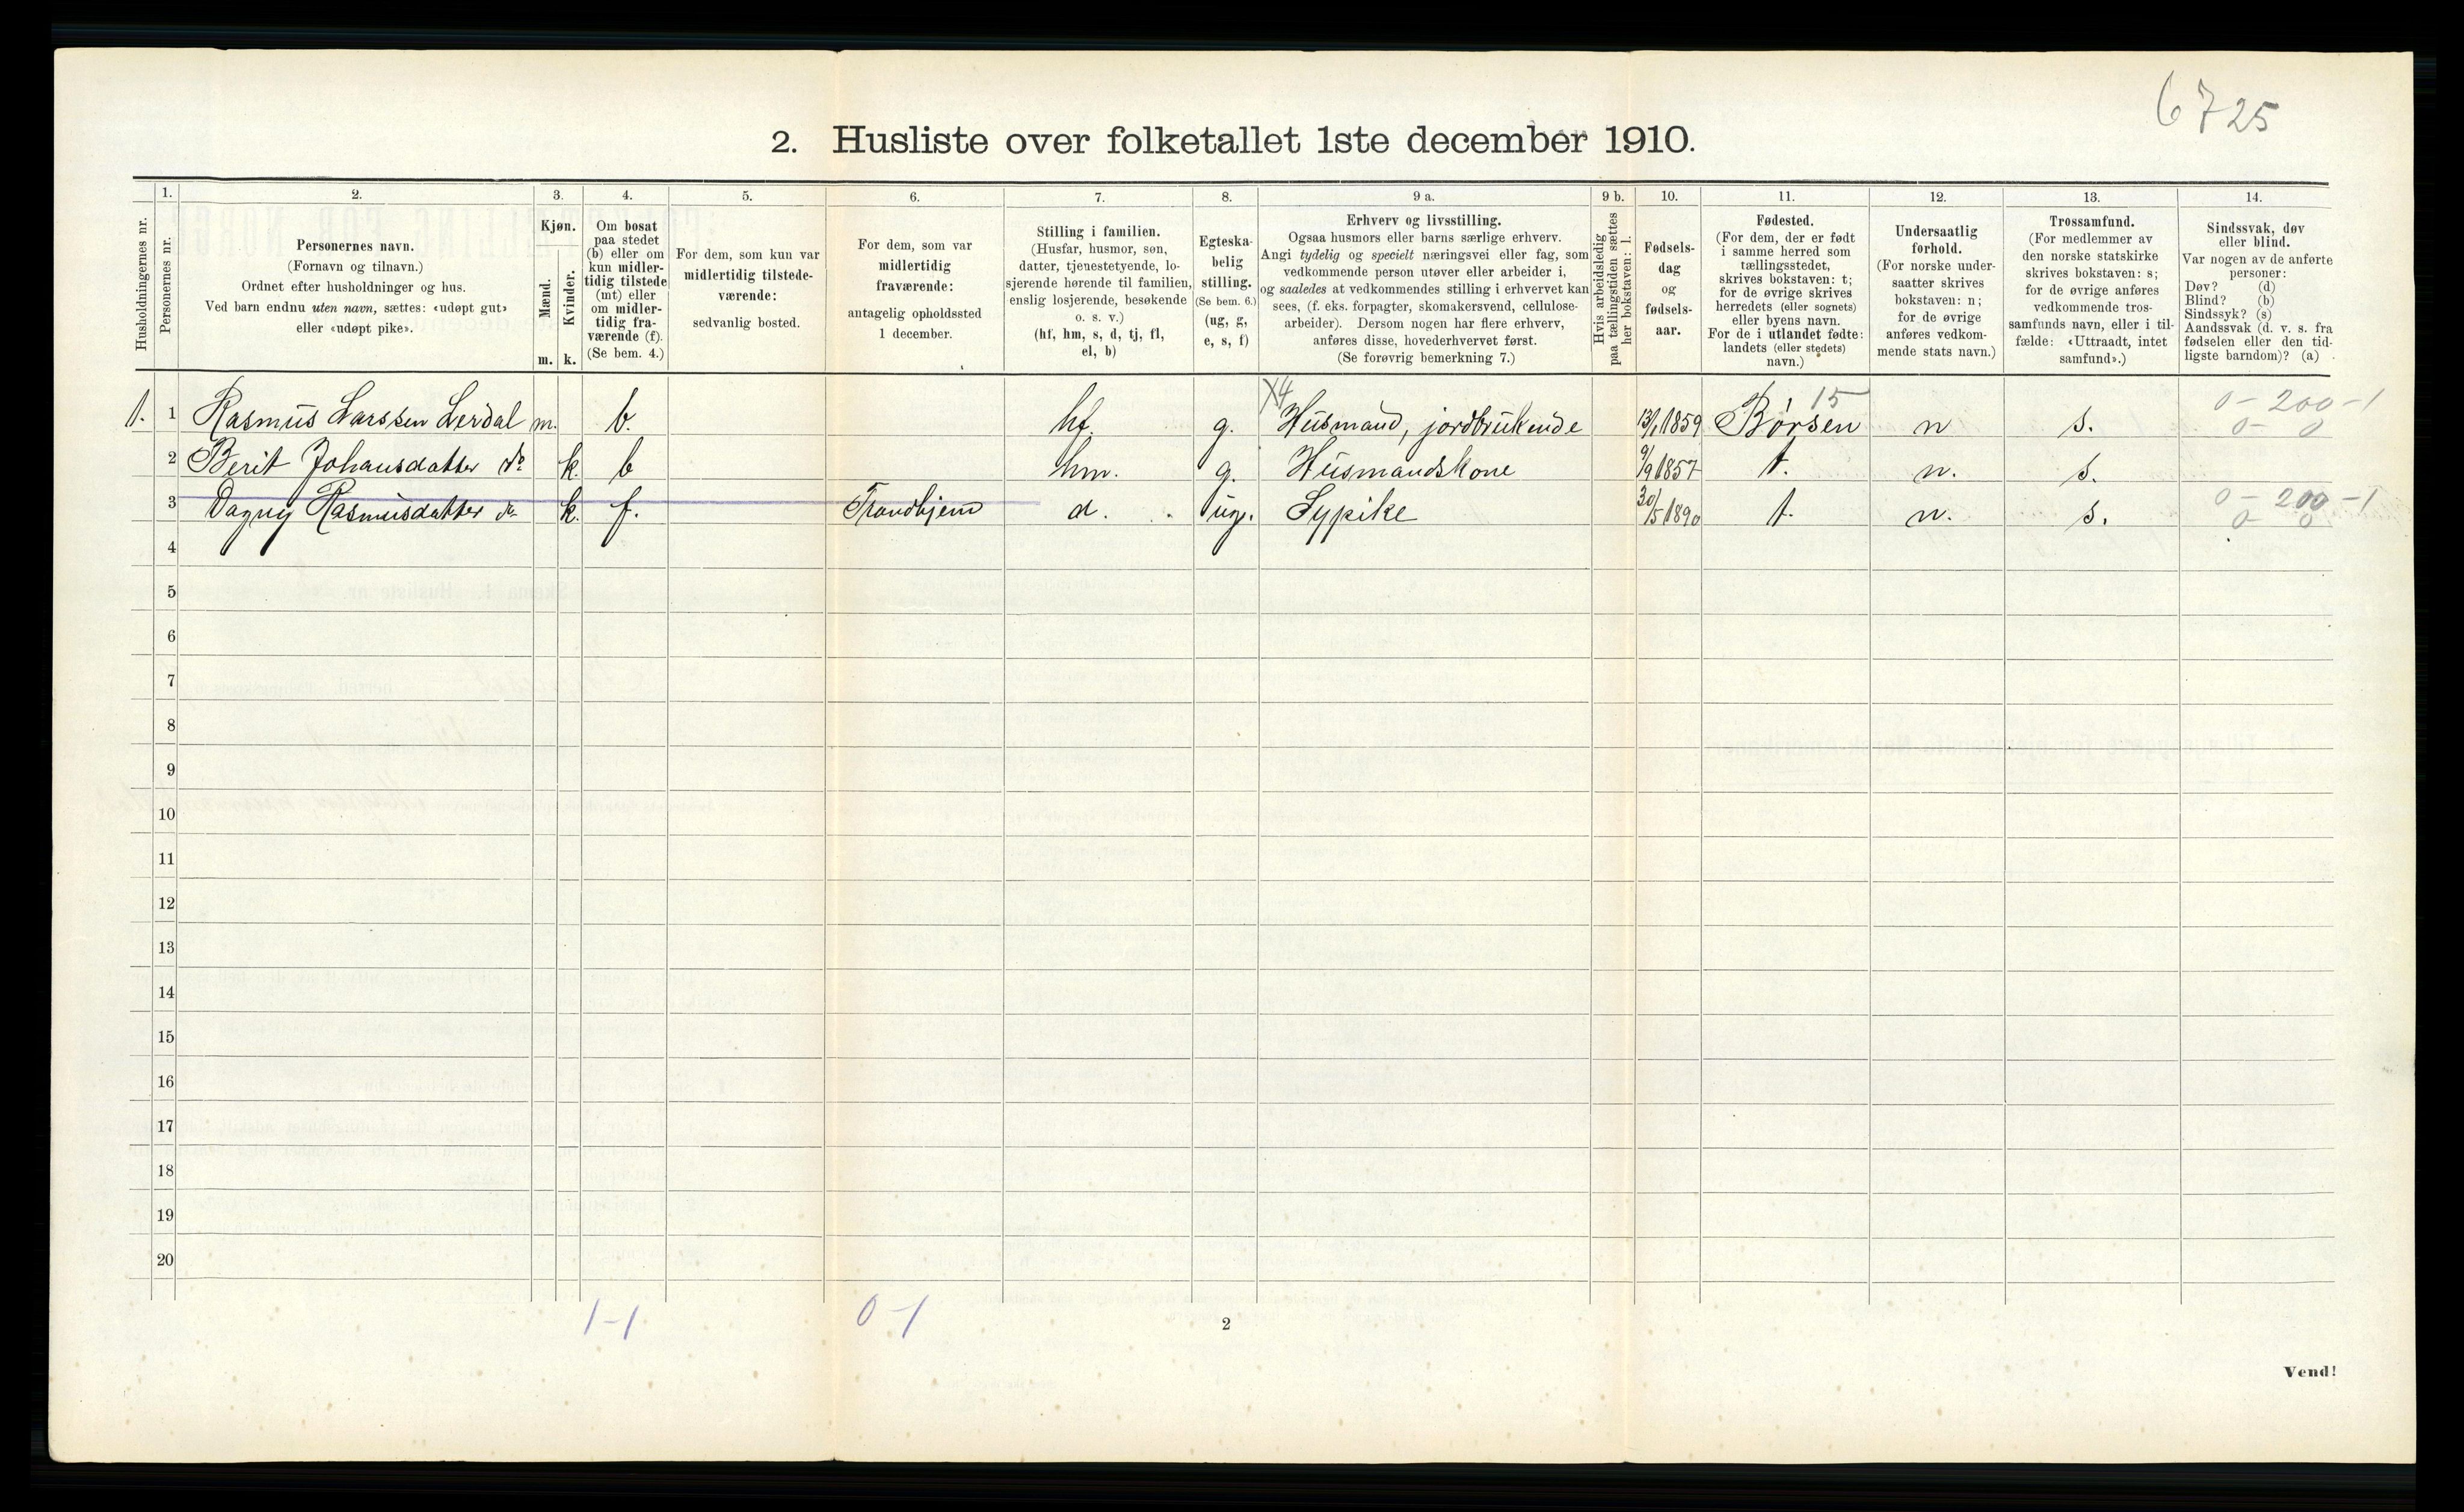 6725
2. Husliste over folketallet 1ste december 1910.
Husholdningernes nr.
1.
Personernes nr.
2.
Personernes navn.
(Fornavn og tilnavn.)
Ordnet efter husholdninger og hus.
Ved barn endnu uten navn, sættes: «udøpt gut»
eller «udøpt pike».
3.
Kjøn.
Mænd.
Kvinder.
m. k.
4.
Om bosat
paa stedet
(b) eller om
kun midler-
tidig tilstede
(mt) eller
om midler-
tidig fra-
værende (f).
(Se bem. 4.)
5.
For dem, som kun var
midlertidig tilstede-
værende:
sedvanlig bosted.
6.
For dem, som var
midlertidig
fraværende:
antagelig opholdssted
1 december.
7.
Stilling i familien.
(Husfar, husmor, søn,
datter, tjenestetyende, lo-
sjerende hørende til familien,
enslig losjerende, besøkende
o. s. v.)
(hf, hm, s, d, tj, fl,
el, b)
8.
Egteska-
belig
stilling.
(Se bem. 6.)
(ug, g,
e, s, f)
9 a.
Erhverv og livsstilling.
Ogsaa husmors eller barns særlige erhverv.
Angi tydelig og specielt næringsvei eller fag, som
vedkommende person utøver eller arbeider i,
og saaledes at vedkommendes stilling i erhvervet kan
sees, (f. eks. forpagter, skomakersvend, cellulose-
arbeider). Dersom nogen har flere erhverv,
anføres disse, hovederhvervet først.
(Se forøvrig bemerkning 7.)
9 b.
Hvis arbeidsledig
paa tællingstiden sættes
her bokstaven: l.
10.
Fødsels-
dag
og
fødsels-
aar.
11.
Fødested.
(For dem, der er født
i samme herred som
tællingsstedet,
skrives bokstaven: t;
for de øvrige skrives
herredets (eller sognets)
eller byens navn.
For de i utlandet fødte:
landets (eller stedets)
navn.)
12.
Undersaatlig
forhold.
(For norske under-
saatter skrives
bokstaven: n;
for de øvrige
anføres vedkom-
mende stats navn.)
13.
Trossamfund.
(For medlemmer av
den norske statskirke
skrives bokstaven: s;
for de øvrige anføres
vedkommende tros-
samfunds navn, eller i til-
fælde: «Uttraadt, intet
samfund».)
14.
Sindssvak, døv
eller blind.
Var nogen av de anførte
personer:
Døv? (d)
Blind? (b)
Sindssyk? (s)
Aandssvak (d. v. s. fra
fødselen eller den tid-
ligste barndom)? (a)
X4 15 0-200-1
1. 1 Rasmus Larssen Lerdal m. b. hf. g. Husmand, jordbrukende 13/1 1859 Børsen n s. 0- 0
2 Berit Johansdatter do k. b hm. g. Husmandskone 9/9 1857 t. n. s.
0-200-1
3 Dagny Rasmusdatter do k. f. Trondhjem d. ug. Sypike 30/5 1890 t. n. s. 0- 0
4
5
6
7
8
9
10
11
12
13
14
15
16
17
18
19
20
1-1 0-1
2
Vend!